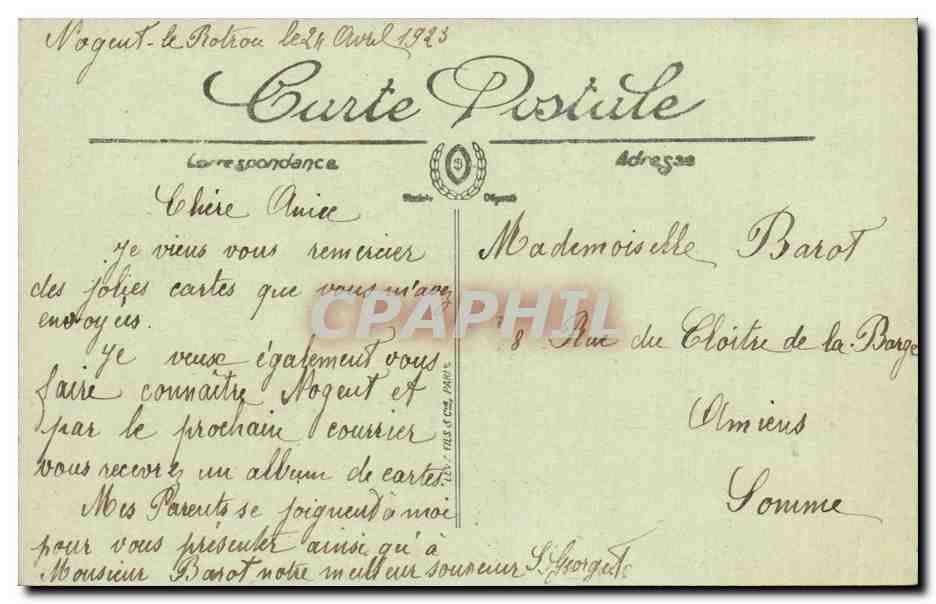 Nogent-le Rotrou le 24 Avril 1923
Carte Postale
Correspondance
Adresse
Chère Amie
Je viens vous remercier
des jolies cartes que vous m'avez
envoyées.
Je veux également vous
faire connaître Nogent et
par le prochain courrier
vous recevrez un album de cartes.
Mes Parents se joignent à moi
pour vous présenter ainsi qu'à
Monsieur Barot notre meilleur souvenir
LEVY FILS & Cie, PARIS
Mademoiselle Barot
8 Rue du Cloitre de la Barge
Amiens
Somme
CPAPHIL